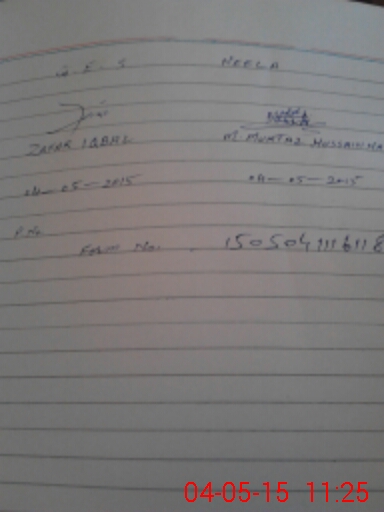 G E S NEELA
ZAFAR IQBAL M. MUMTAZ HUSSAIN
04-05-2015 04-05-2015
P.No
Form No. 1505041116118
04-05-15 11:25